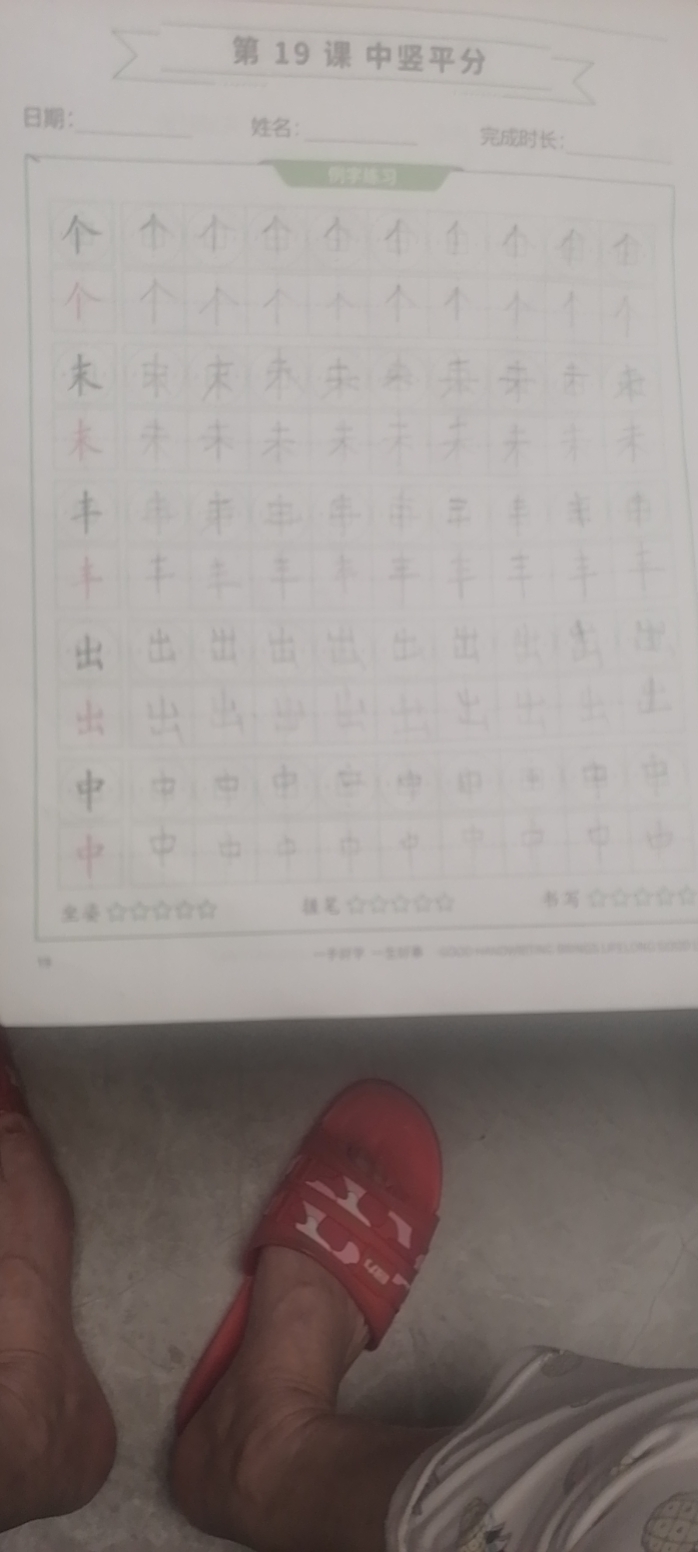 第 19 课 中竖平分
日期： 姓名： 完成时长：
例字练习
个 个 个 个 个 个 个 个 个 个
个 个 个 个 个 个 个 个 个 个
末 末 末 末 末 末 末 末 末 末
末 末 末 末 末 末 末 末 末 末
丰 丰 丰 丰 丰 丰 丰 丰 丰
丰 丰 丰 丰 丰 丰 丰 丰 丰 丰
出 出 出 出 出 出 出 出 出 出
出 出 出 出 出 出 出 出 出
中 中 中 中 中 中 中 中 中
中 中 中 中 中 中 中 中 中 中
坐姿 ☆☆☆☆☆ 握笔 ☆☆☆☆☆ 书写 ☆☆☆☆☆
一手好字 一生好事 GOOD HANDWRITING BRINGS LIFELONG GOOD